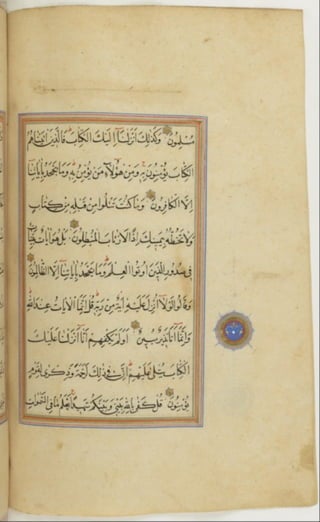 مُسْلِمُونَ وَكَذَلِكَ أَنْزَلْنَا إِلَيْكَ الْكِتَابَ فَالَّذِينَ آتَيْنَاهُمُ
الْكِتَابَ يُؤْمِنُونَ بِهِ وَمِنْ هَؤُلَاءِ مَنْ يُؤْمِنُ بِهِ وَمَا يَجْحَدُ بِآيَاتِنَا
إِلَّا الْكَافِرُونَ وَمَا كُنْتَ تَتْلُوا مِنْ قَبْلِهِ مِنْ كِتَابٍ
وَلَا تَخُطُّهُ بِيَمِينِكَ إِذًا لَارْتَابَ الْمُبْطِلُونَ بَلْ هُوَ آيَاتٌ بَيِّنَاتٌ
فِي صُدُورِ الَّذِينَ أُوتُوا الْعِلْمَ وَمَا يَجْحَدُ بِآيَاتِنَا إِلَّا الظَّالِمُونَ
وَقَالُوا لَوْلَا أُنْزِلَ عَلَيْهِ آيَةٌ مِنْ رَبِّهِ قُلْ إِنَّمَا الْآيَاتُ عِنْدَ اللَّهِ
وَإِنَّمَا أَنَا نَذِيرٌ مُبِينٌ أَوَلَمْ يَكْفِهِمْ أَنَّا أَنْزَلْنَا عَلَيْكَ
الْكِتَابَ يُتْلَى عَلَيْهِمْ إِنَّ فِي ذَلِكَ لَرَحْمَةً وَذِكْرَى لِقَوْمٍ
يُؤْمِنُونَ قُلْ كَفَى بِاللَّهِ بَيْنِي وَبَيْنَكُمْ شَهِيدًا يَعْلَمُ مَا فِي السَّمَوَاتِ